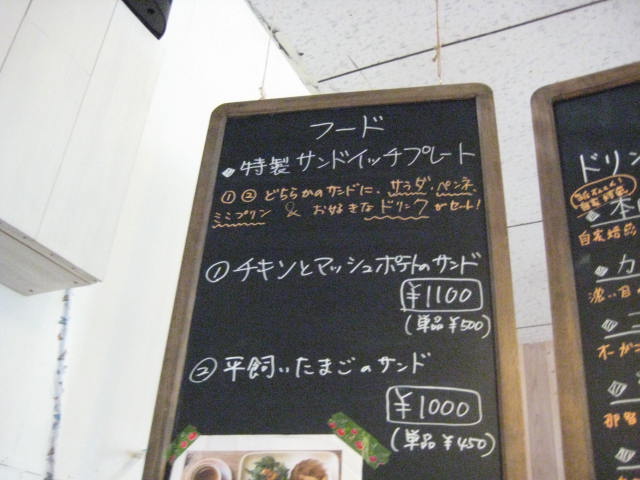 フード
特製 サンドイッチプレート
①② どちらかのサンドに、サラダ・ペンネ、
ミニプリン & お好きなドリンクがセット!
① チキンとマッシュポテトのサンド
¥1100
(単品 ¥500)
② 平飼いたまごのサンド
¥1000
(単品 ¥450)
ドリン
自家焙煎
カ
濃い目の
オーガニ